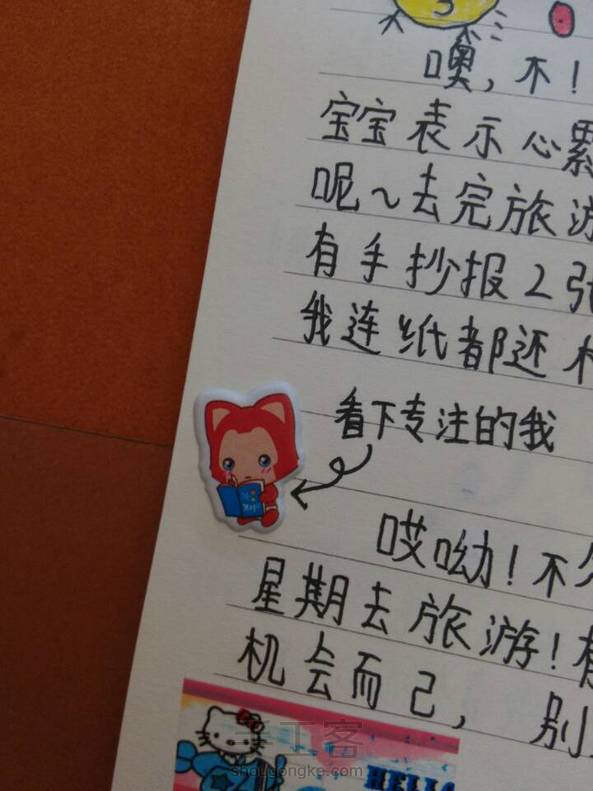 噢,不!
宝宝表示心累
呢~去完旅游
有手抄报2张
我连纸都还
看下专注的我
哎呦!不
星期去旅游!
机会而己, 别
手工客
shougongke.com
HELLO